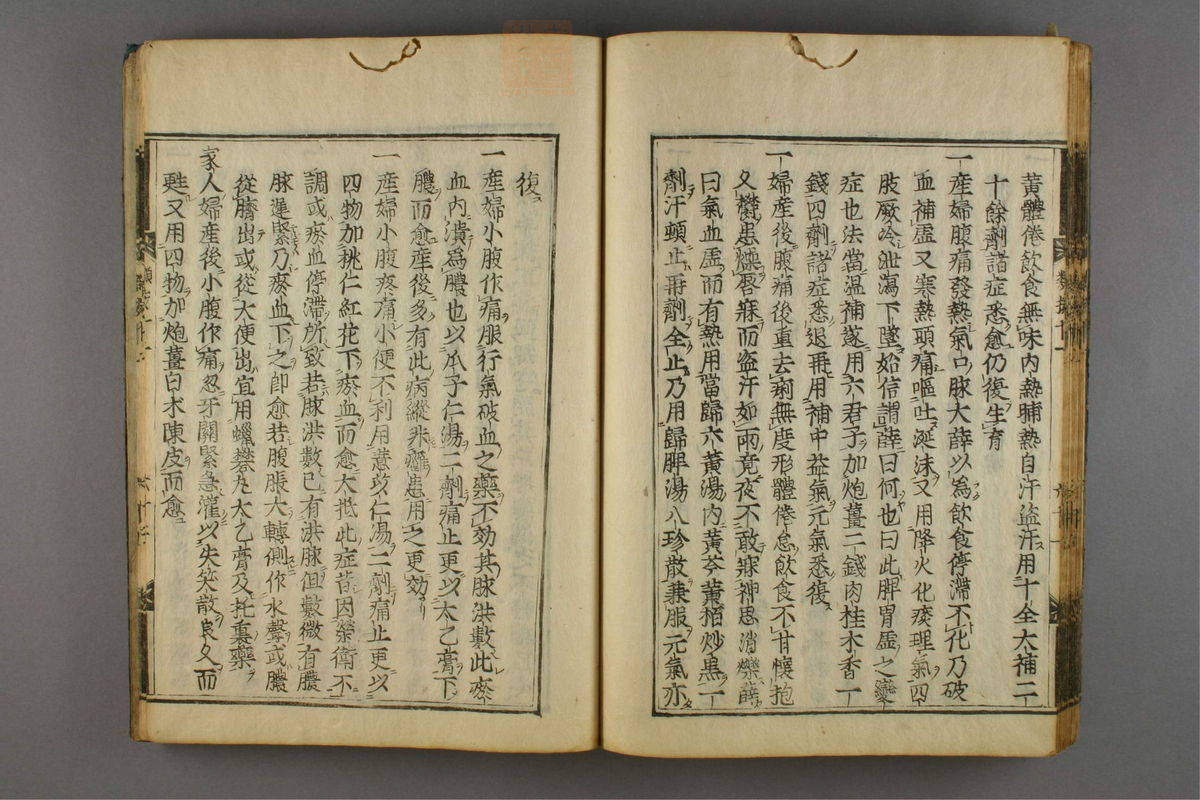 黄體倦飲食無味内熱晡熱自汗盗汗用十全大補二
十餘劑諸症悉愈仍復生育
一産婦腹痛發熱氣口脉大薛以為飲食停滞不化乃破
血補虚又寒熱頭痛嘔吐涎沫又用降火化痰理氣四
肢厥冷泄瀉下墜始信謂薛曰何也曰此脾胃虚之變
症也法當温補遂用六君子加炮薑二錢肉桂木香一
錢四劑諸症悉退再用補中益氣元氣悉復
一婦産後腹痛後重去痢無度形體倦怠飲食不甘懷抱
久欝患燥唇寐而盗汗如雨竟夜不敢寐神思消爍薛
曰氣血虚而有熱用當歸六黄湯内黄芩黄栢炒黒一
劑汗頓止再劑全止乃用歸脾湯八珍散兼服元氣亦
復
一産婦小腹作痛服行氣破血之藥不効其脉洪數此瘀
血内潰為膿也以瓜子仁湯二劑痛止更以太乙膏下
膿而愈産後多有此病縱非癰患用之更効
一産婦小腹疼痛小便不利用薏苡仁湯二劑痛止更以
四物加桃仁紅花下瘀血而愈大抵此症皆因榮衛不
調或瘀血停滞所致若脉洪數已有洪脉但數微有膿
脉遅緊乃瘀血下之即愈若腹脹大轉側作水聲或膿
從臍出或從大便出宜用蠟礬丸太乙膏及托裏藥
家人婦産後小腹作痛忽牙關緊急灌以失笑散良久而
甦又用四物加炮薑白术陳皮而愈